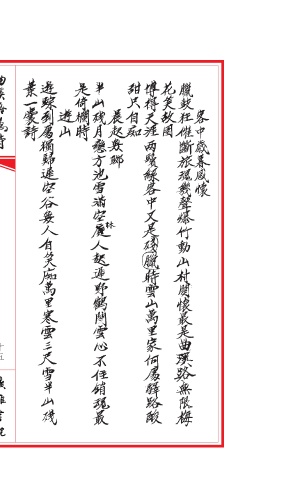 客中歲暮感懷
臘鼓狂催斷旅魂幾聲爆竹動山村關懷最是曲溪路無限梅
花笑故園
博得天涯兩鬢絲客中又是殘臘時雲山萬里家何處驛路酸
甜只自知
晨起
半山殘月戀方池雪滿空林人起遲野鶴閒雲心不住銷魂最
是倚欄時
遊山
遊蹤到處獨歸遲空谷無人自笑痴萬里寒雲三尺雪半山殘
葉一囊詩
十五